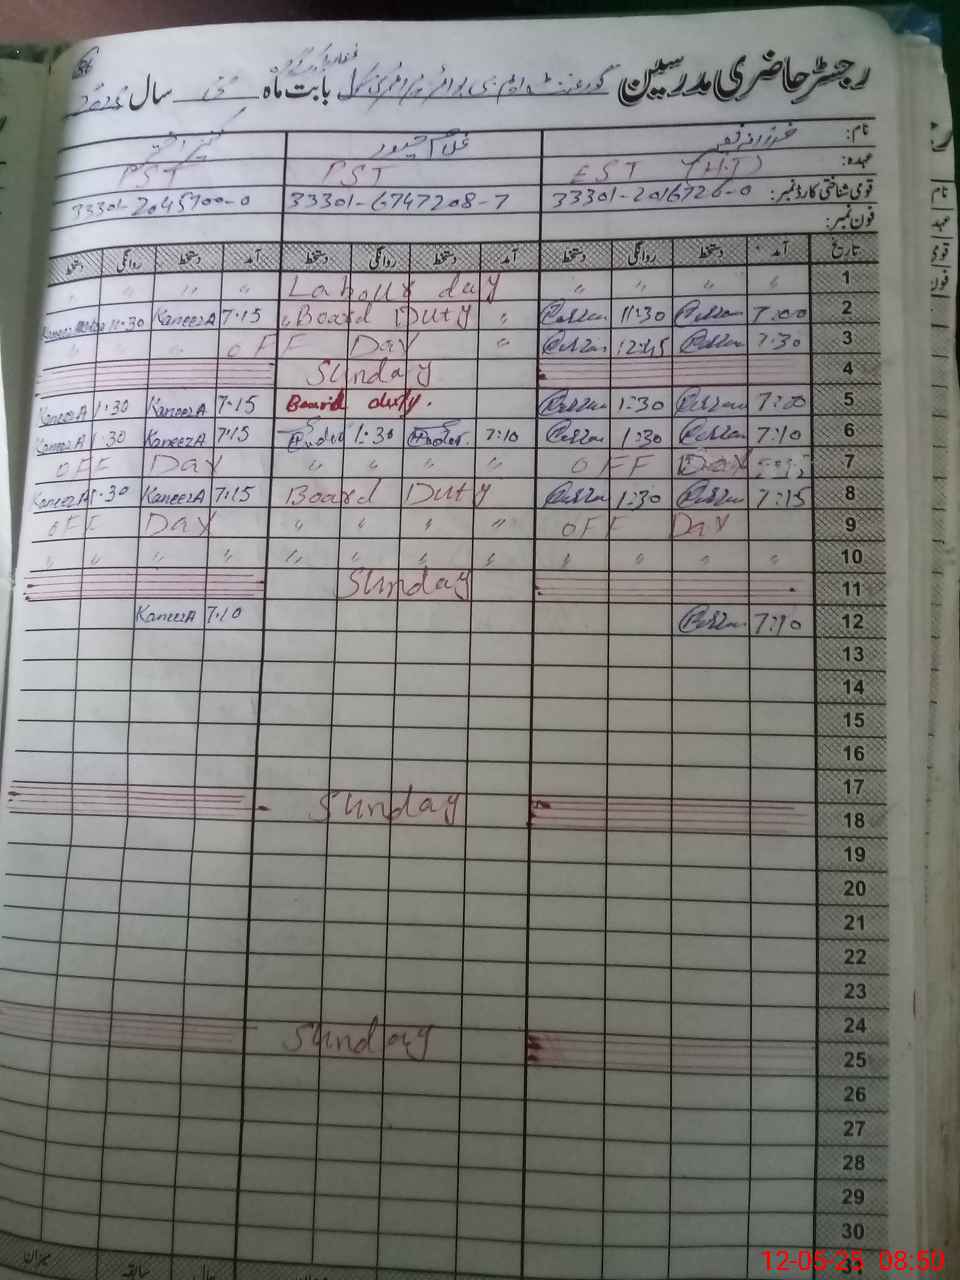 رجسٹر حاضری مدرسین گورنمنٹ ایم سی بوائز پرائمری سکول بابت ماہ مئی سال 2025
نام: غلام حیدر کنیز اختر
عہدہ: EST (H.T) PST PST
قومی شناختی کارڈ نمبر: 33301-2016726-0 33301-6747208-7 33301-2045700-0
فون نمبر:
تاریخ آمد دستخط روانگی دستخط آمد دستخط روانگی دستخط آمد دستخط روانگی دستخط
1 " " " " Labour day " " " "
2 7:00 11:30 " Board Duty " 7:15 KaneezA 11:30
3 7:30 12:45 " OFF Day " " "
4 Sunday
5 7:00 1:30 Board duty. 7:15 KaneezA 1:30 KaneezA
6 7:10 1:30 7:10 1:30 7:15 KaneezA 1:30 KaneezA
7 OFF Day " " " " OFF Day
8 7:15 1:30 Board Duty 7:15 KaneezA 1:30 KaneezA
9 OFF Day " " " " OFF Day
10 " " " " " " " " " " " "
11 Sunday
12 7:10 7:10 KaneezA
13
14
15
16
17
18 Sunday
19
20
21
22
23
24
25 Sunday
26
27
28
29
30
31
میزان سابقہ حال
12-05-25 08:50